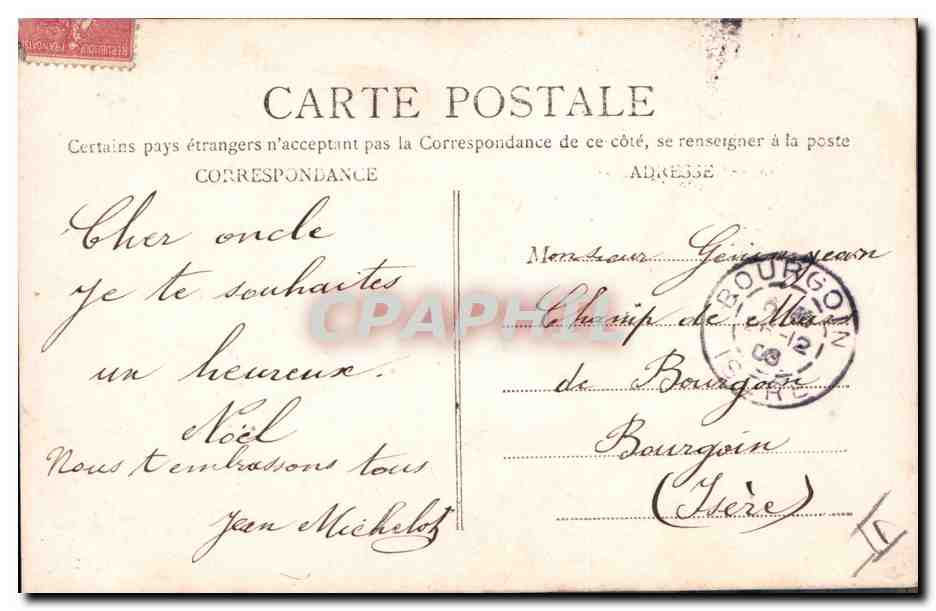 REPUBLIQUE FRANÇAISE
CARTE POSTALE
Certains pays étrangers n'acceptent pas la Correspondance de ce côté, se renseigner à la poste
CORRESPONDANCE
Cher oncle
je te souhaites
un heureux.
Noël
Nous t'embrassons tous
Jean Michelot
ADRESSE
Monsieur
Champ de Mars
de Bourgoin
Bourgoin
(Isère)
BOURGOIN
12
ISÈRE
CPAPHIL